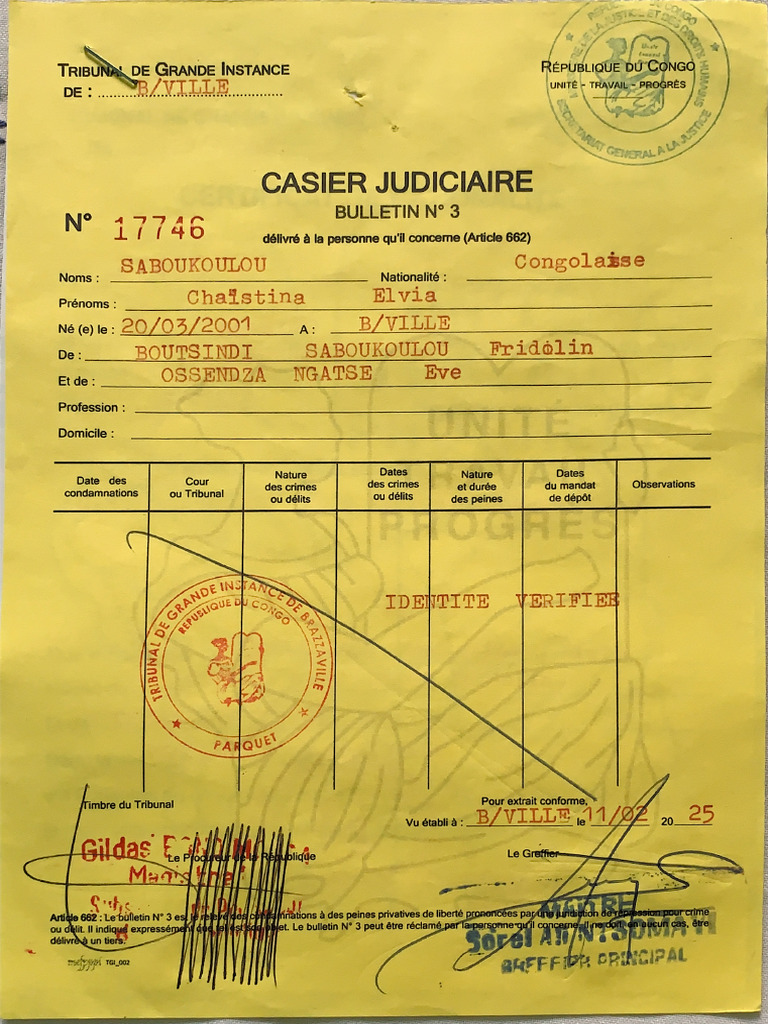 TRIBUNAL DE GRANDE INSTANCE
DE : B/VILLE
RÉPUBLIQUE DU CONGO
UNITÉ - TRAVAIL - PROGRÈS
SECRETARIAT GENERAL A LA JUSTICE
CASIER JUDICIAIRE
BULLETIN N° 3
N° 17746
délivré à la personne qu'il concerne (Article 662)
Noms : SABOUKOULOU Nationalité : Congolaise
Prénoms : Chaïstina Elvia
Né (e) le : 20/03/2001 A : B/VILLE
De : BOUTSINDI SABOUKOULOU Fridolin
Et de : OSSENDZA NGATSE Eve
Profession :
Domicile :
UNITÉ
PROGRÈS
Date des condamnations Cour ou Tribunal Nature des crimes ou délits Dates des crimes ou délits Nature et durée des peines Dates du mandat de dépôt Observations
IDENTITE VERIFIEE
TRIBUNAL DE GRANDE INSTANCE DE BRAZZAVILLE
REPUBLIQUE DU CONGO
PARQUET
Timbre du Tribunal
Pour extrait conforme,
Vu établi à : B/VILLE le 11/02 20 25
Gildas
Le Procureur de la République
Le Greffier
MAITRE
GREFFIER PRINCIPAL
Article 662 : Le bulletin N° 3 est le relevé des condamnations à des peines privatives de liberté prononcées par une juridiction de répression pour crime
ou délit. Il indique expressément que tel est son objet. Le bulletin N° 3 peut être réclamé par la personne qu'il concerne. Il ne doit, en aucun cas, être
délivré à un tiers.
TGI_002